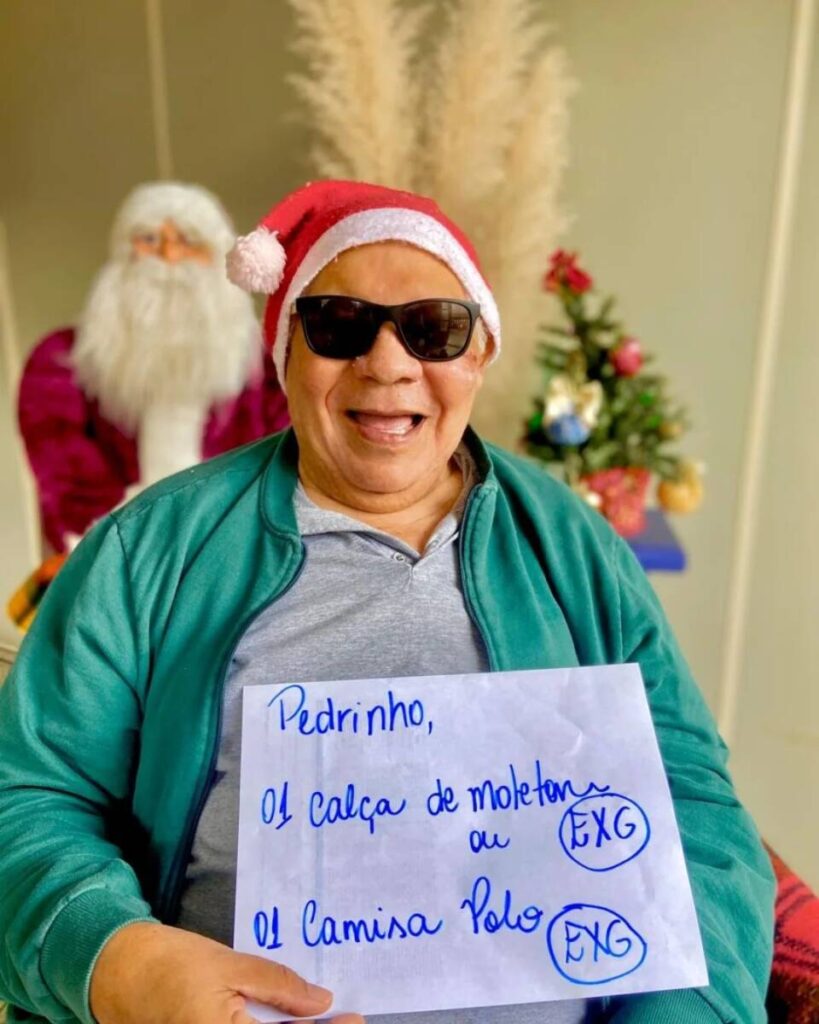 Pedrinho,
01 calça de moletom
ou EXG
01 Camisa Polo EXG